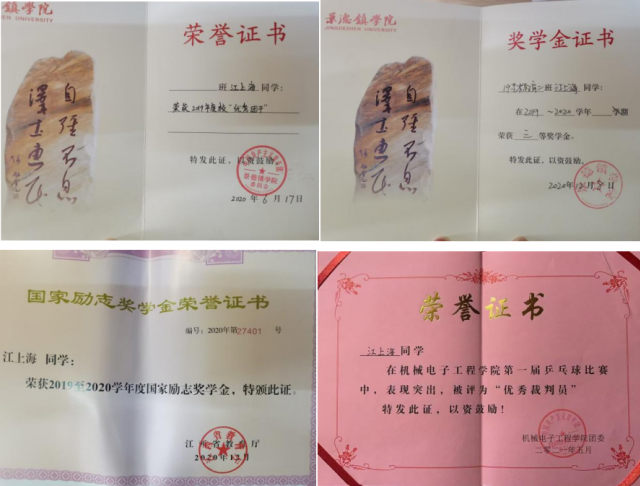 景德鎮学院
JINGDEZHEN UNIVERSITY
荣誉证书
自强不息
澤土惠民
班 江上海 同学:
荣获2019年度校"优秀团干"
特发此证,以资鼓励。
2020 年 6 月 17 日
景德鎮学院
JINGDEZHEN UNIVERSITY
奖学金证书
自强不息
澤土惠民
班 江上海 同学:
在 2019 ~2020 学年 学期
荣获 三 等奖学金。
特发此证,以资鼓励。
2020年12月 日
国家励志奖学金荣誉证书
编号: 2020年第27401 号
江上海 同学:
荣获2019至2020学年度国家励志奖学金,特颁此证。
江西省教育厅
2020年12月
荣誉证书
江上海 同学
在机械电子工程学院第一届乒乓球比赛
中,表现突出,被评为"优秀裁判员"
特发此证,以资鼓励!
机械电子工程学院团委
二零二一年五月